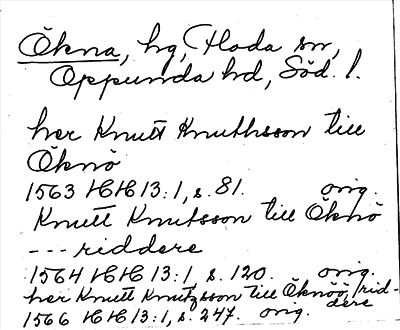 Ökna, hg, Floda sn,
Oppunda hd, Söd. l.
her Knutt Knuthsson till
Öknö
1563 HH 13:1, s. 81. orig.
Knutt Knutsson till Öknö
--- riddere
1564 HH 13:1, s. 120. orig.
her Knutt Knutzsson till Öknöö, rid-
dere
1566 HH 13:1, s. 247. orig.